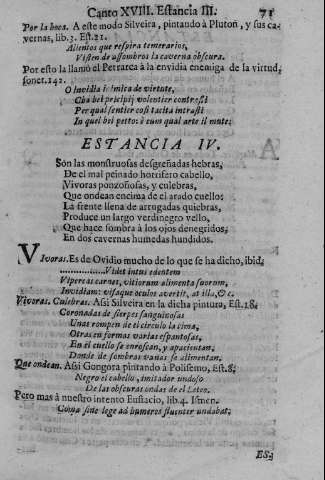 Canto XVIII. Estancia III. 71
Por la boca. A este modo Silveira, pintando à Pluton, y sus ca-
vernas, lib. 3. Est. 21.
Alientos que respira temerarios,
Visten de assombros la caverna obscura.
Por esto la llamó el Petrarca à la envidia enemiga de la virtud,
sonet. 142.
O invidia inimica di virtute,
Cha bei principij volentier contrasti
Per qual sentier cosi tacita intrasti
In quel bel petto: è cum qual arte il mute:
ESTANCIA IV.
Son las monstruosas desgreñadas hebras,
De el mal peinado horrifero cabello,
Vivoras ponzoñosas, y culebras,
Que ondean encima de el arado cuello:
La frente llena de arrugadas quiebras,
Produce un largo verdinegro vello,
Que hace sombra à los ojos denegridos,
En dos cavernas humedas hundidos.
Vivoras. Es de Ovidio mucho de lo que se ha dicho, ibid.
................Videt intus edentem
Vipereas carnes, vitiorum alimenta suorum,
Invidiam: visaque oculos avertit, at illa, &c.
Vivoras. Culebras. Assi Silveira en la dicha pintura, Est. 18.
Coronadas de sierpes sanguinosas
Unas rompen de el circulo la cima,
Otras en formas varias espantosas,
En el cuello se enroscan, y apacientan,
Donde de sombras vanas se alimentan.
Que ondean. Assi Gongora pintando à Polifemo, Est. 8.
Negro el cabello, imitador undoso
De las obscuras ondas de el Leteo.
Pero mas à nuestro intento Eustacio, lib. 4. Ismen.
Coma sine lege ad humeros fluenter undabat,
ES4